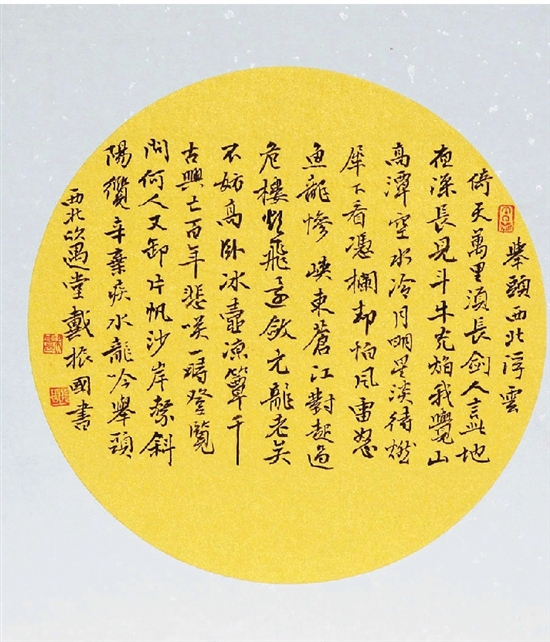 舉頭西北浮雲
倚天萬里須長劍人言此地
夜深長見斗牛光焰我覺山
高潭空水冷月明星淡待燃
犀下看憑欄却怕風雷怒
魚龍慘 峽束蒼江對起過
危樓欲飛還斂元龍老矣
不妨高卧冰壺凉簟千
古興亡百年悲咲一時登覽
問何人又卸片帆沙岸繫斜
陽纜辛棄疾水龍吟舉頭
西北 遇堂戴振國書